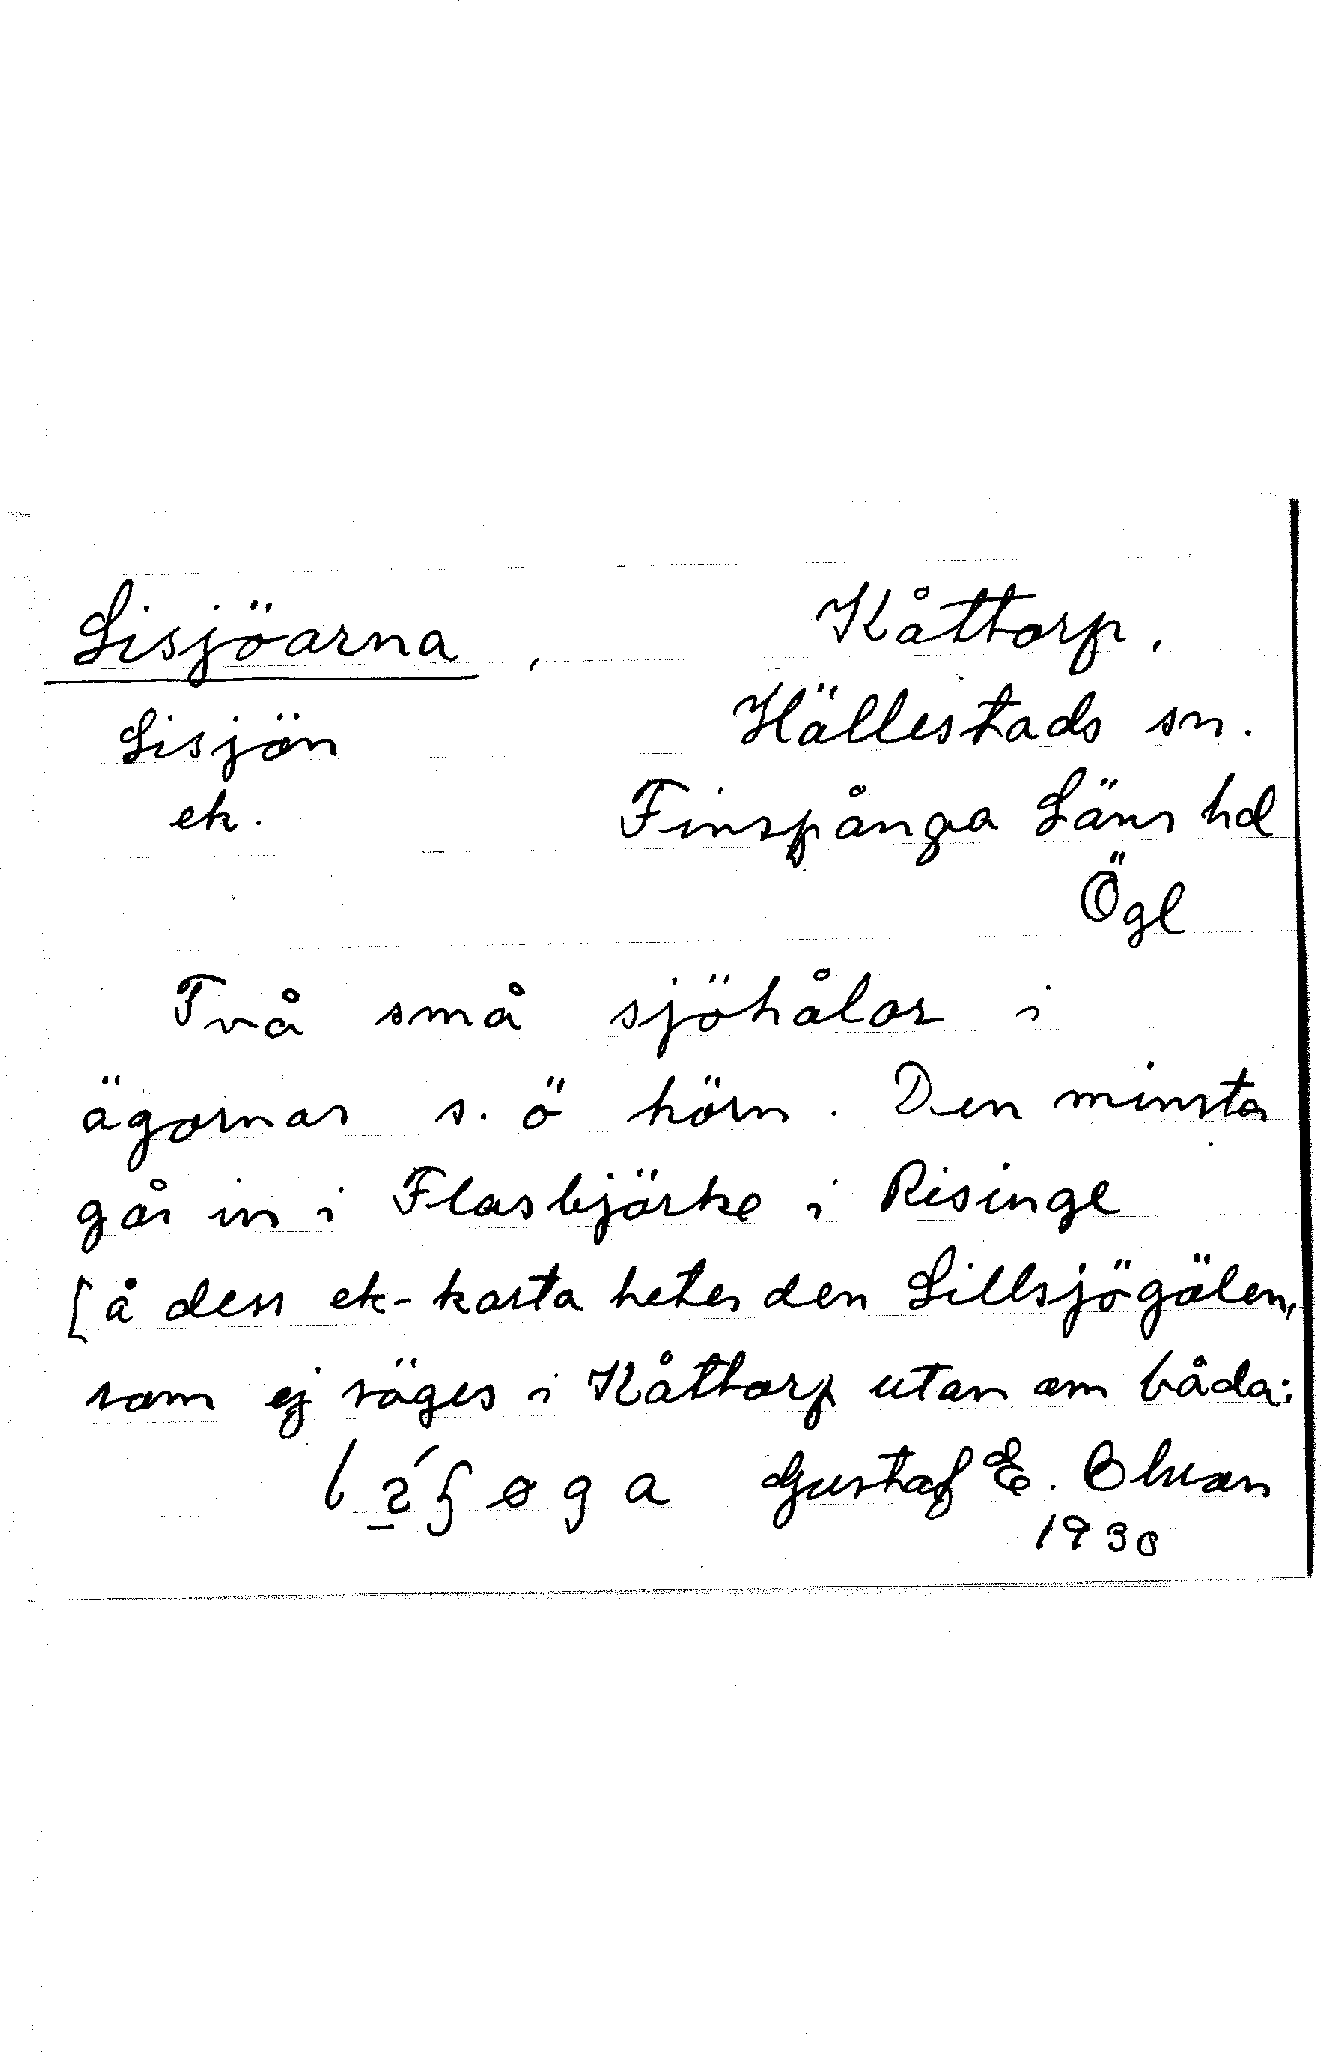 Lisjöarna, Kåttorp,
Lisjön Hällestads sn.
ek. Finspånga Läns hd
Ögl
Två små sjöhålor i
ägornas s. ö hörn. Den minsta
går in i Flasbjörke i Risinge
[å dess ek-karta heter den Lillsjögölen,
som ej säges i Kåttorp utan om båda:
Gustaf E. Olsson
1930